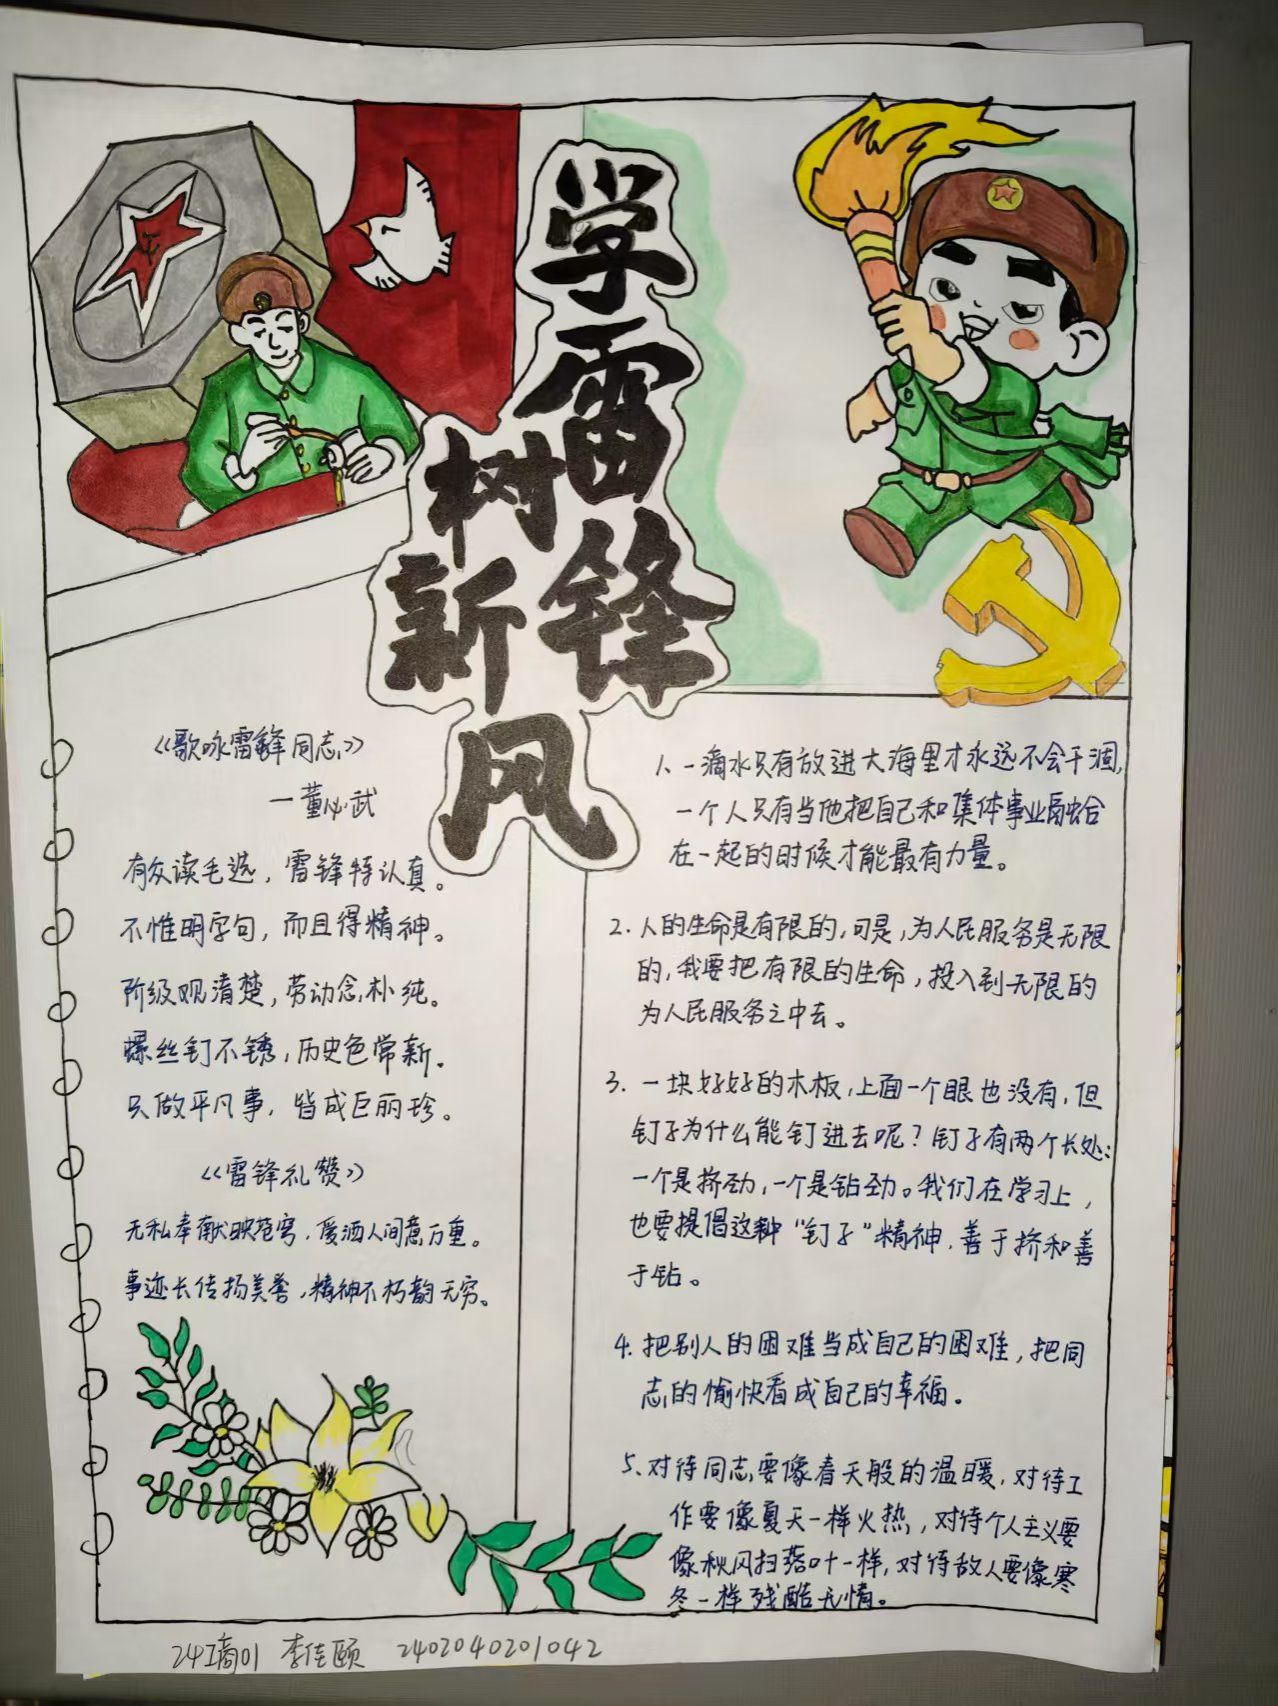 学雷锋
树新风
《歌咏雷锋同志》
一董必武
有众读毛选，雷锋特认真。
不惟明字句，而且得精神。
阶级观清楚，劳动念朴纯。
螺丝钉不锈，历史色常新。
只做平凡事，皆成巨丽珍。
《雷锋礼赞》
无私奉献映苍穹，爱洒人间意万重。
事迹长传扬美誉，精神不朽韵无穷。
1、一滴水只有放进大海里才永远不会干涸，
一个人只有当他把自己和集体事业融合
在一起的时候才能最有力量。
2.人的生命是有限的，可是，为人民服务是无限
的，我要把有限的生命，投入到无限的
为人民服务之中去。
3.一块好好的木板，上面一个眼也没有，但
钉子为什么能钉进去呢？钉子有两个长处：
一个是挤劲，一个是钻劲。我们在学习上，
也要提倡这种“钉子”精神，善于挤和善
于钻。
4.把别人的困难当成自己的困难，把同
志的愉快看成自己的幸福。
5、对待同志要像春天般的温暖，对待工
作要像夏天一样火热，对待个人主义要
像秋风扫落叶一样，对待敌人要像寒
冬一样残酷无情。
24工商01 李佳颐 2402040201042